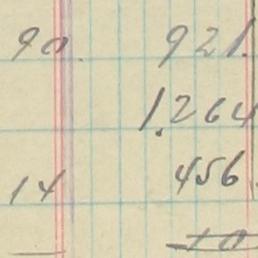 90. 921.
1,264
456.
14